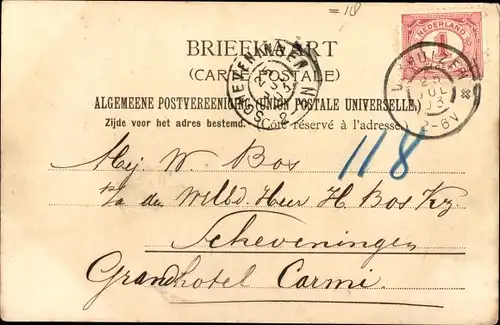 =118
BRIEFKAART
(CARTE POSTALE)
ALGEMEENE POSTVEREENIGING (UNION POSTALE UNIVERSELLE.)
Zijde voor het adres bestemd. (Côté réservé à l'adresse.)
NEDERLAND
1
SCHEVENINGEN
JUL
03
2-6V
118
Mej W. Bos
p/a den WelEd. Heer H. Bos Kz.
Scheveningen
Grandhotel Carmi.